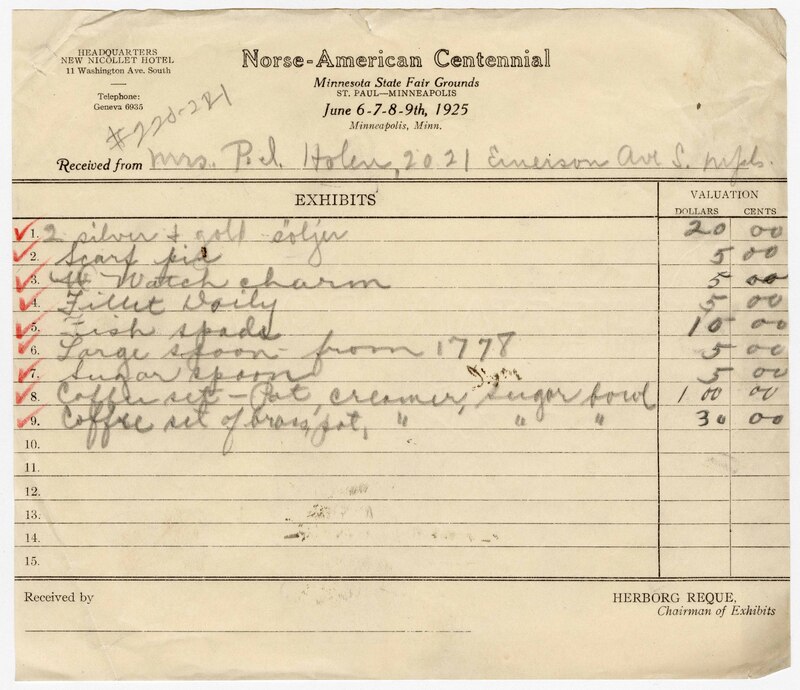 HEADQUARTERS
NEW NICOLLET HOTEL
11 Washington Ave. South
Telephone:
Geneva 6935
Norse-American Centennial
Minnesota State Fair Grounds
ST. PAUL—MINNEAPOLIS
June 6-7-8-9th, 1925
Minneapolis, Minn.
#220-221
Received from Mrs. P. I. Holen, 2021 Emerson Ave S. Mpls.
EXHIBITS VALUATION
DOLLARS CENTS
1. 2 silver + gold söljer 20 00
2. Scarf pin 5 00
3. Watch charm 5 00
4. Fillet Doily 5 00
5. Fish spade 10 00
6. Large spoon - from 1778 5 00
7. Sugar spoon 5 00
8. Coffee set - Pot, creamer, sugar bowl 100 00
9. Coffee set of brass, pot, " " " 30 00
10.
11.
12.
13.
14.
15.
Received by
HERBORG REQUE,
Chairman of Exhibits